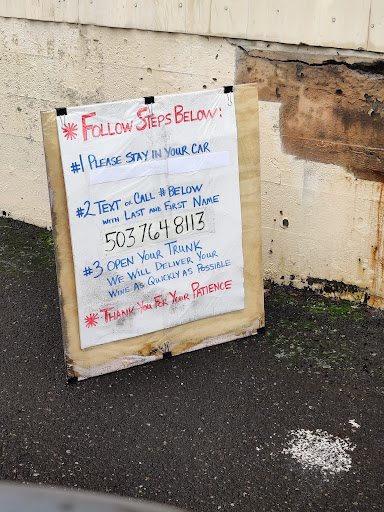 ✳ Follow Steps Below:
#1 Please Stay in Your Car
#2 Text or Call # Below
with Last and First Name
503 764 8113
#3 Open Your Trunk
We Will Deliver Your
Wine as Quickly as Possible
✳ Thank You For Your Patience